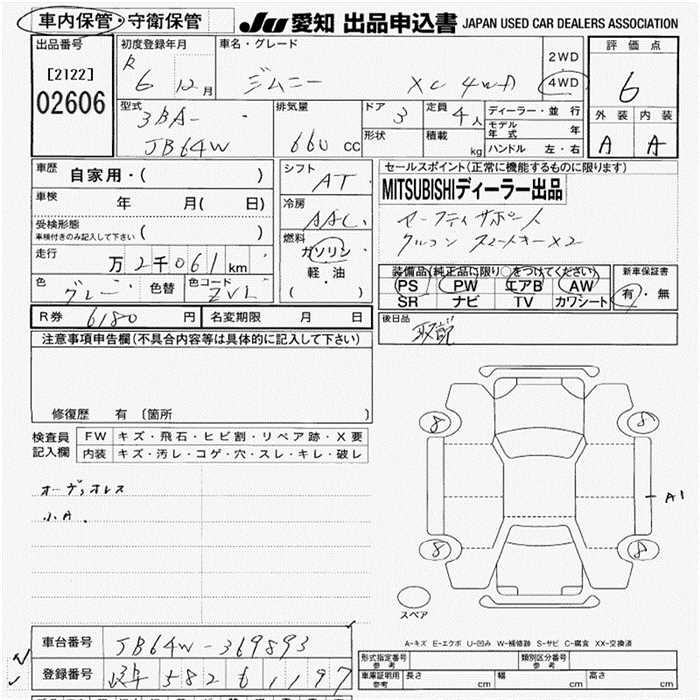 車内保管・守衛保管
JU 愛知 出品申込書 JAPAN USED CAR DEALERS ASSOCIATION
出品番号 初度登録年月 車名・グレード 評価点
[2122] R 6 12月 ジムニー XC 4WD 2WD・4WD 6
02606
外装 内装
型式 排気量 ドア 定員 ディーラー・並行
3BA- 3 4人 モデル年式 年 A A
JB64W 660cc 形状 積載 kg ハンドル 左・右
車歴 自家用・( ) シフト AT セールスポイント(正常に機能するものに限ります)
車検 年 月( 日) 冷房 AAC MITSUBISHIディーラー出品
受検形態 セーフティサポート
車検付きのみ記入して下さい ( ) 燃料 クルコン スマートキー×2
走行 万2千061km ガソリン・軽油・( ) 装備品(純正品に限り○をつけてください) 新車保証書
色 グレー 色替 色コード ZVL PS PW エアB AW 有・無
SR ナビ TV カワシート
R券 6180円 名変期限 月 日 後日品 取説
注意事項申告欄(不具合内容等は具体的に記入して下さい)
修復歴 有 〔箇所 〕
検査員記入欄 FW キズ・飛石・ヒビ割・リペア跡・X要
内装 キズ・汚レ・コゲ・穴・スレ・キレ・破レ
オーディオレス
小A.
8 8
A1
8 8
スペア
A-キズ E-エクボ U-凹み W-補修跡 S-サビ C-腐食 XX-交換済
車台番号 JB64W-369893
登録番号 582 1197
形式指定番号 参考 類別区分番号 参考
車庫証明用 参考 長さ cm 幅 cm 高さ cm